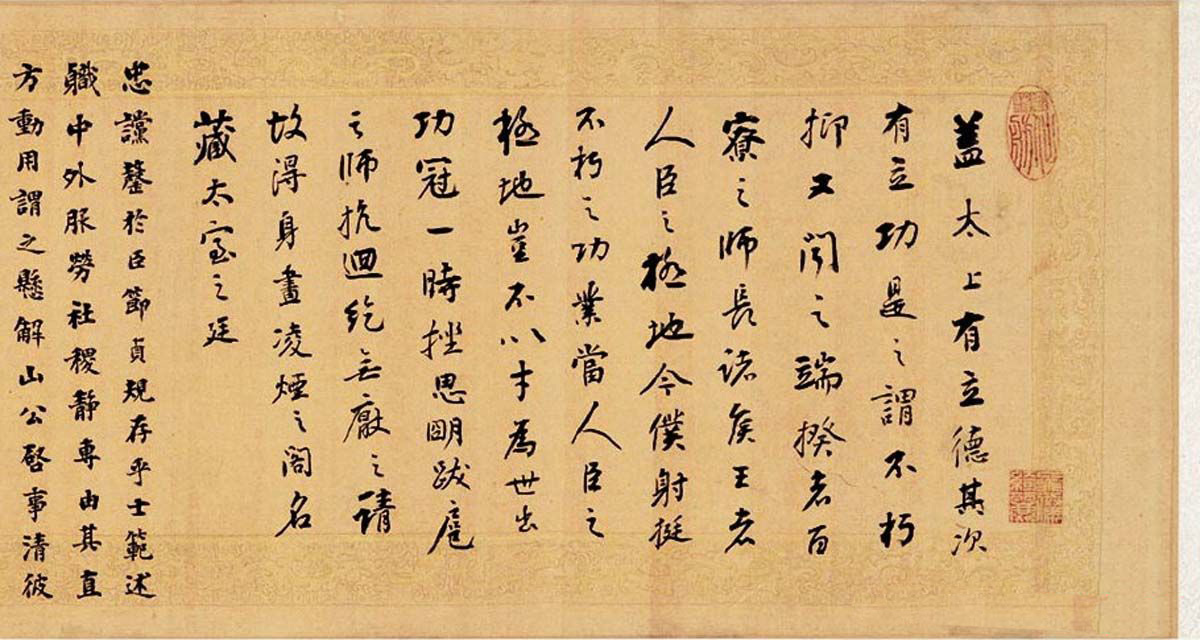 盖太上有立德其次
有立功是之謂不朽
抑又聞之端揆者百
寮之師長諸矦王者
人臣之極地今僕射挺
不朽之功業當人臣之
極地豈不以才為世出
功冠一時挫思明跋扈
之師抗迴紇無厰之請
故得身畫凌煙之閣名
藏太室之廷
忠讜罄於臣節貞規存乎士範述
職中外服勞社稷静專由其直
方動用謂之懸解山公啓事清彼